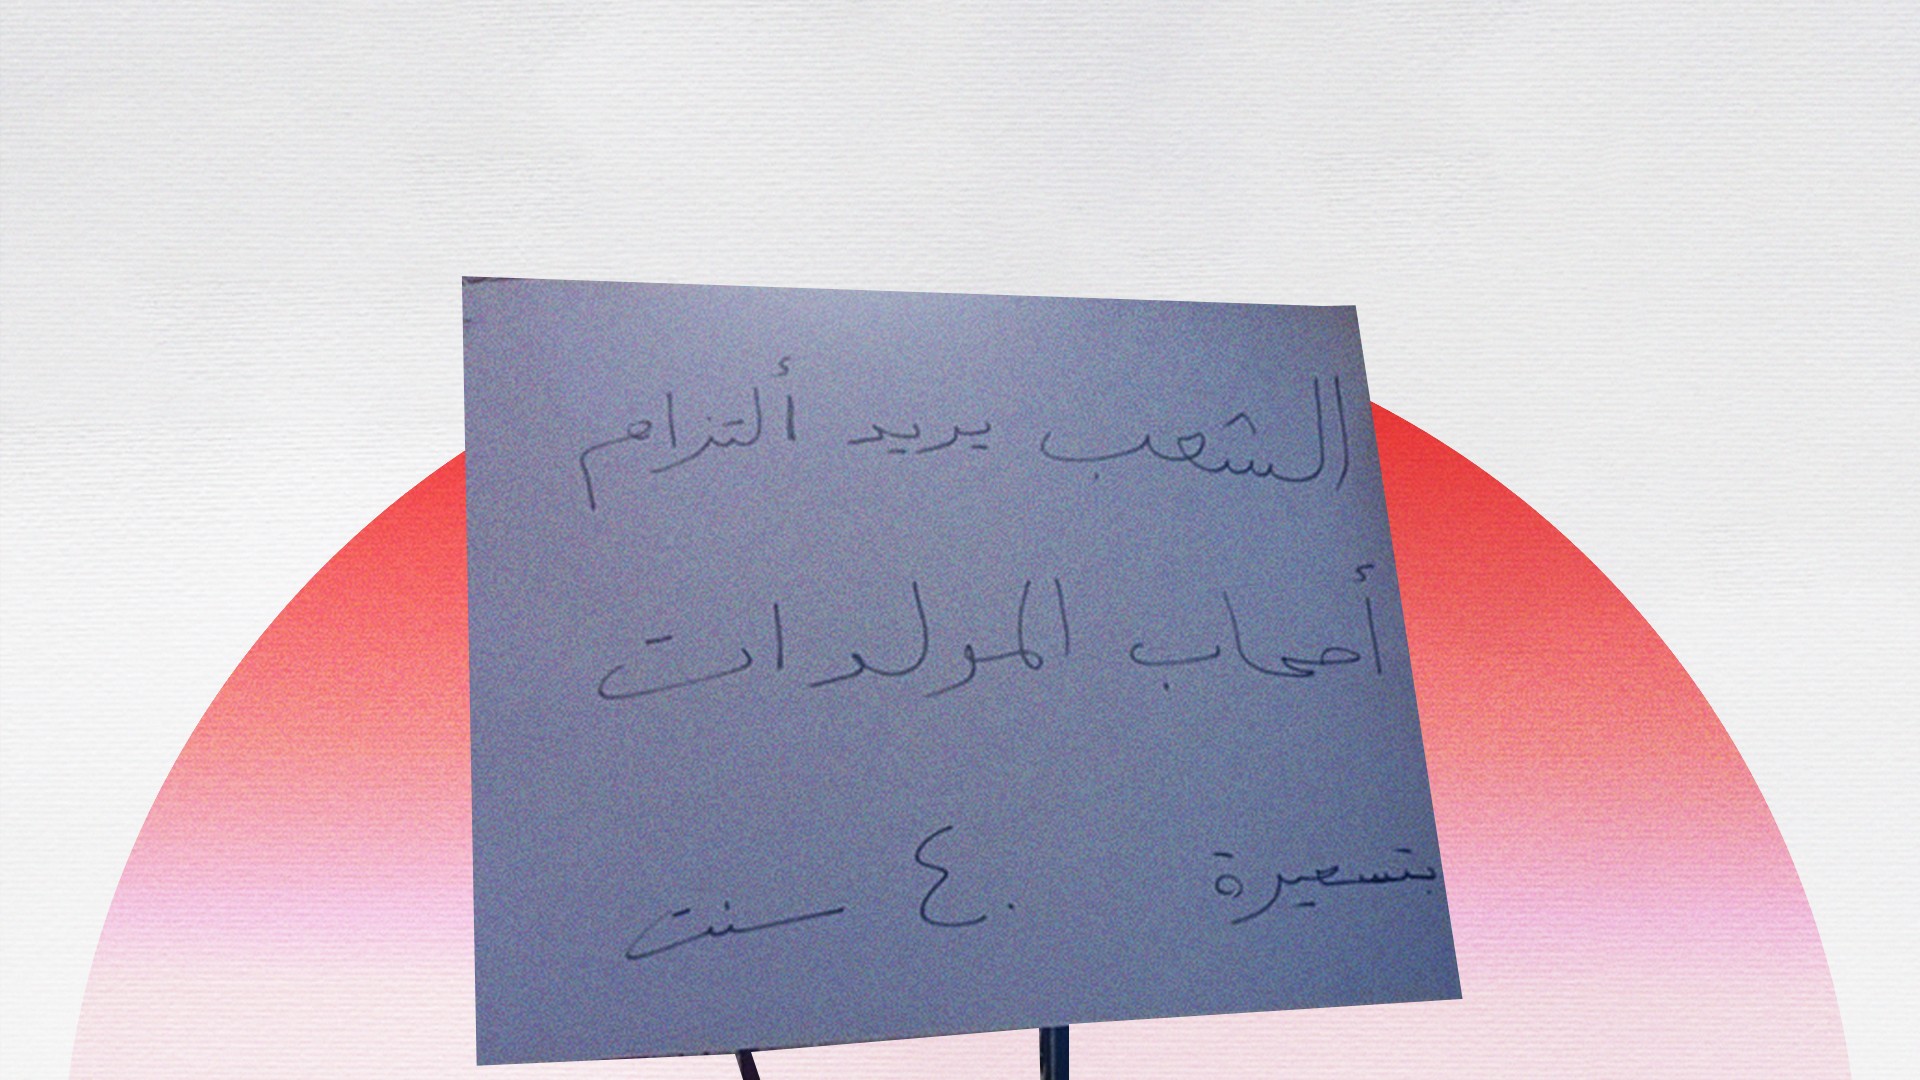 الشعب يريد ألتزام
أصحاب المولدات
بتسعيرة ٤٠ سنت